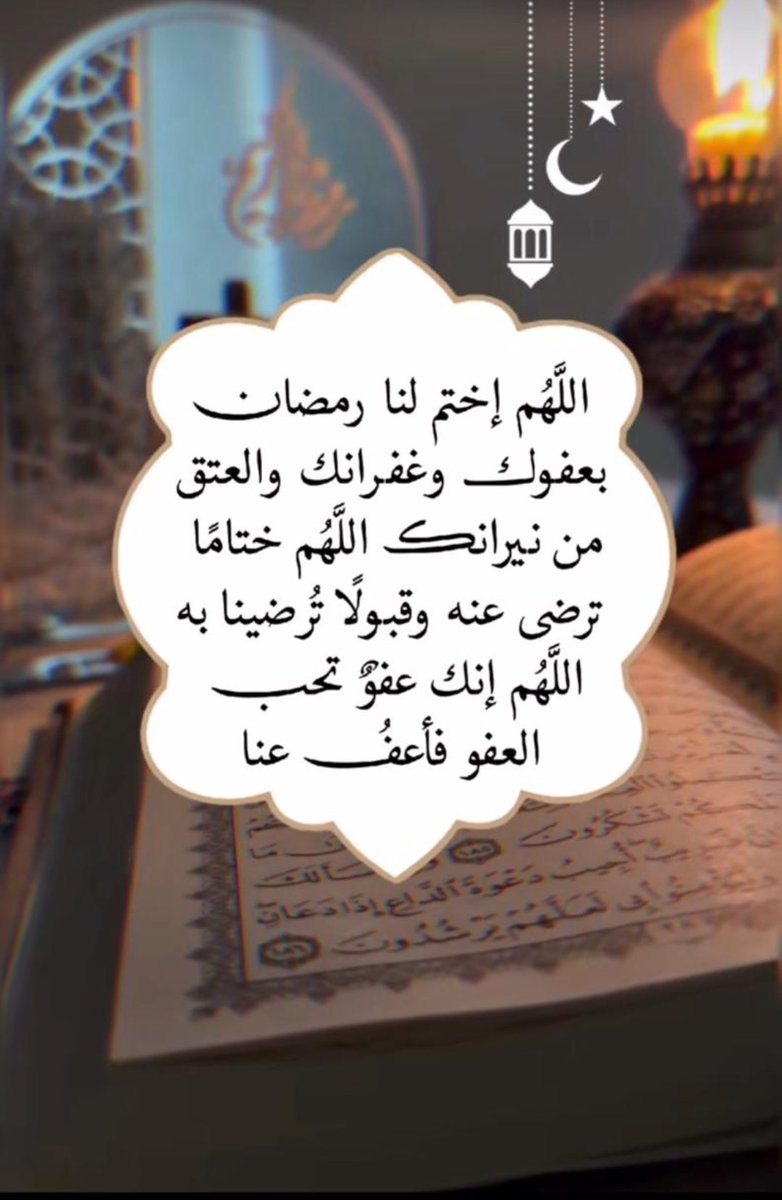 اللَّهُم إختم لنا رمضان
بعفوك وغفرانك والعتق
من نيرانك اللَّهُم ختامًا
ترضى عنه وقبولًا تُرضينا به
اللَّهُم إنك عفوٌ تحب
العفو فأعفُ عنا
تَشْكُرُونَ ١٨٥
أُجِيبُ دَعْوَةَ ٱلدَّاعِ إِذَا دَعَانِ
بِى لَعَلَّهُمْ يَرْشُدُونَ ١٨٦